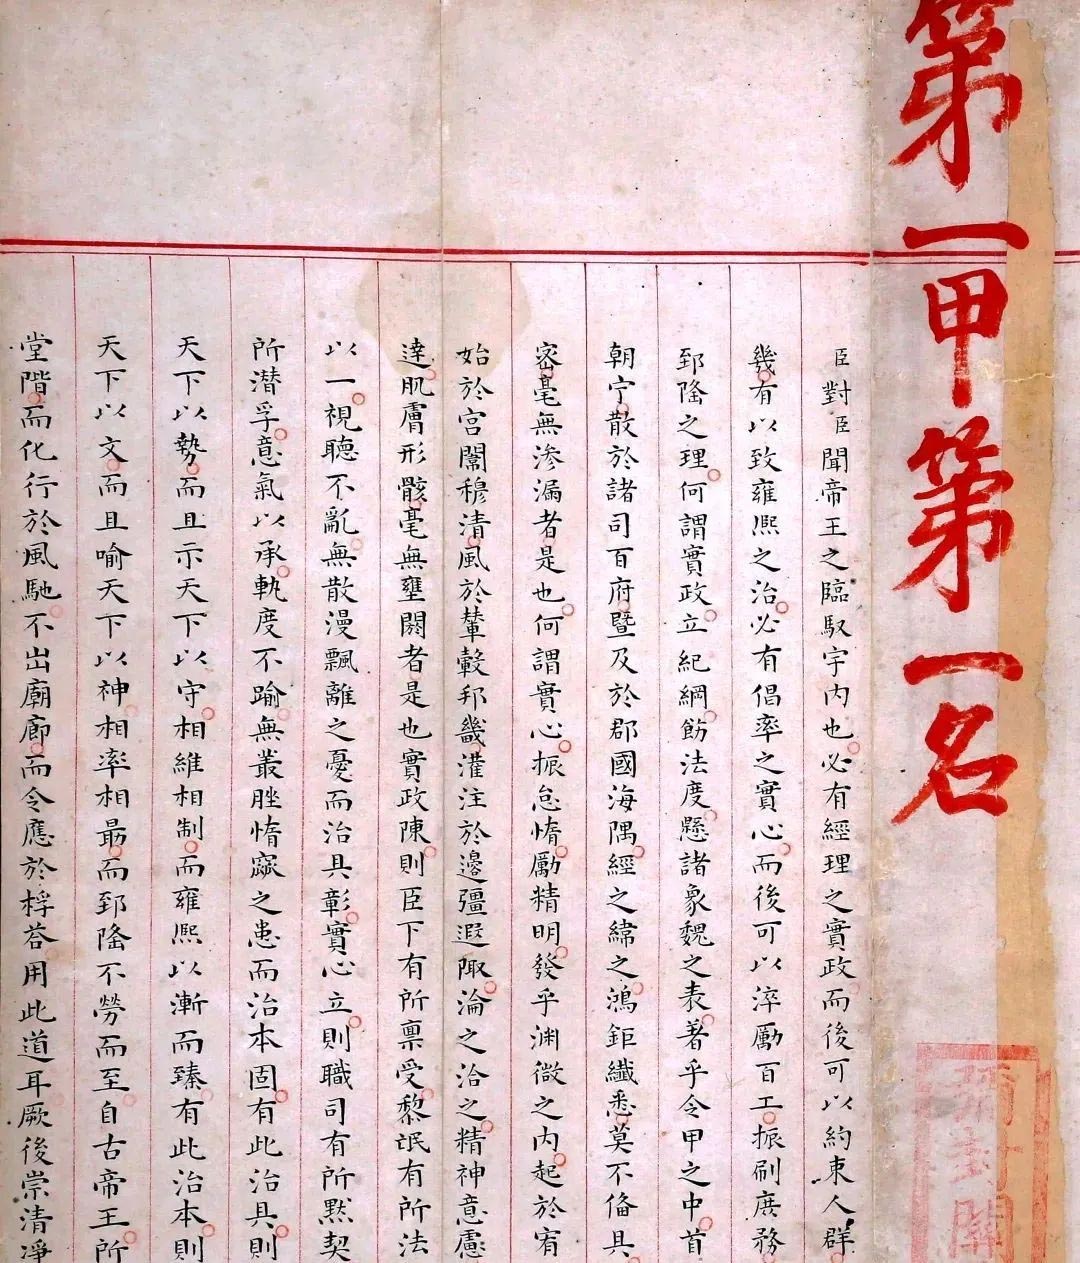 第一甲第一名
彌封關
臣對臣聞帝王之臨馭宇內也必有經理之實政而後可以約束人群
幾有以致雍熙之治必有倡率之實心而後可以淬勵百工振刷庶務
郅隆之理何謂實政立紀綱飭法度懸諸象魏之表著乎令甲之中首
朝宁散於諸司百府暨及於郡國海隅經之緯之鴻鉅纖悉莫不偹具
宻毫無滲漏者是也何謂實心振怠惰勵精明發乎渊微之內起於宥
始於宮闈穆清風於輦轂邦畿灌注於邊疆遐陬淪之洽之精神意慮
達肌膚形骸毫無壅閼者是也實政陳則臣下有所禀受黎氓有所法
以一視聽不亂無散漫飄離之憂而治具彰實心立則職司有所默契
所潛孚意氣以承軌度不踰無叢脞惰窳之患而治本固有此治具則
天下以勢而且示天下以守相維相制而雍熙以漸而臻有此治本則
天下以文而且喻天下以神相率相最而郅隆不勞而至自古帝王所
堂階而化行於風馳不出廟廊而令應於桴荅用此道耳厥後崇清凈